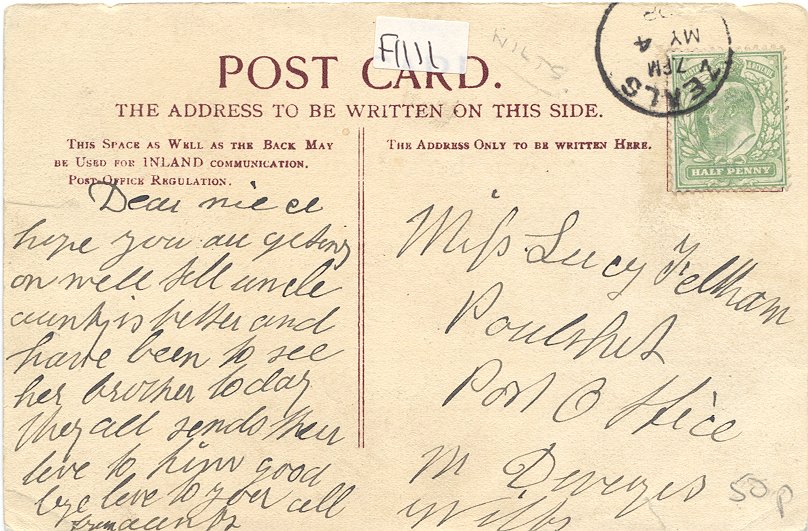 POST CARD.
F1111
WILTS
THE ADDRESS TO BE WRITTEN ON THIS SIDE.
THIS SPACE AS WELL AS THE BACK MAY
BE USED FOR INLAND COMMUNICATION.
POST OFFICE REGULATION.
THE ADDRESS ONLY TO BE WRITTEN HERE.
ZEALS
7 PM
MY 4
HALF PENNY
Dear niece
hope you are geting
on well tell uncle
aunty is better and
have been to see
her brother today
they all sends their
love to him good
bye love to you all
from aunty
Miss Lucy Feltham
Poulshot
Post Office
Nr Devizes
Wilts
50p